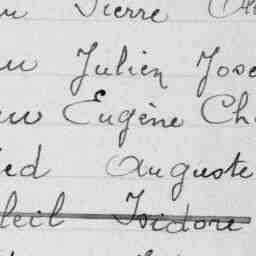 Pierre
Julien Jose
Eugène Ch
ed Auguste
leil Isidore